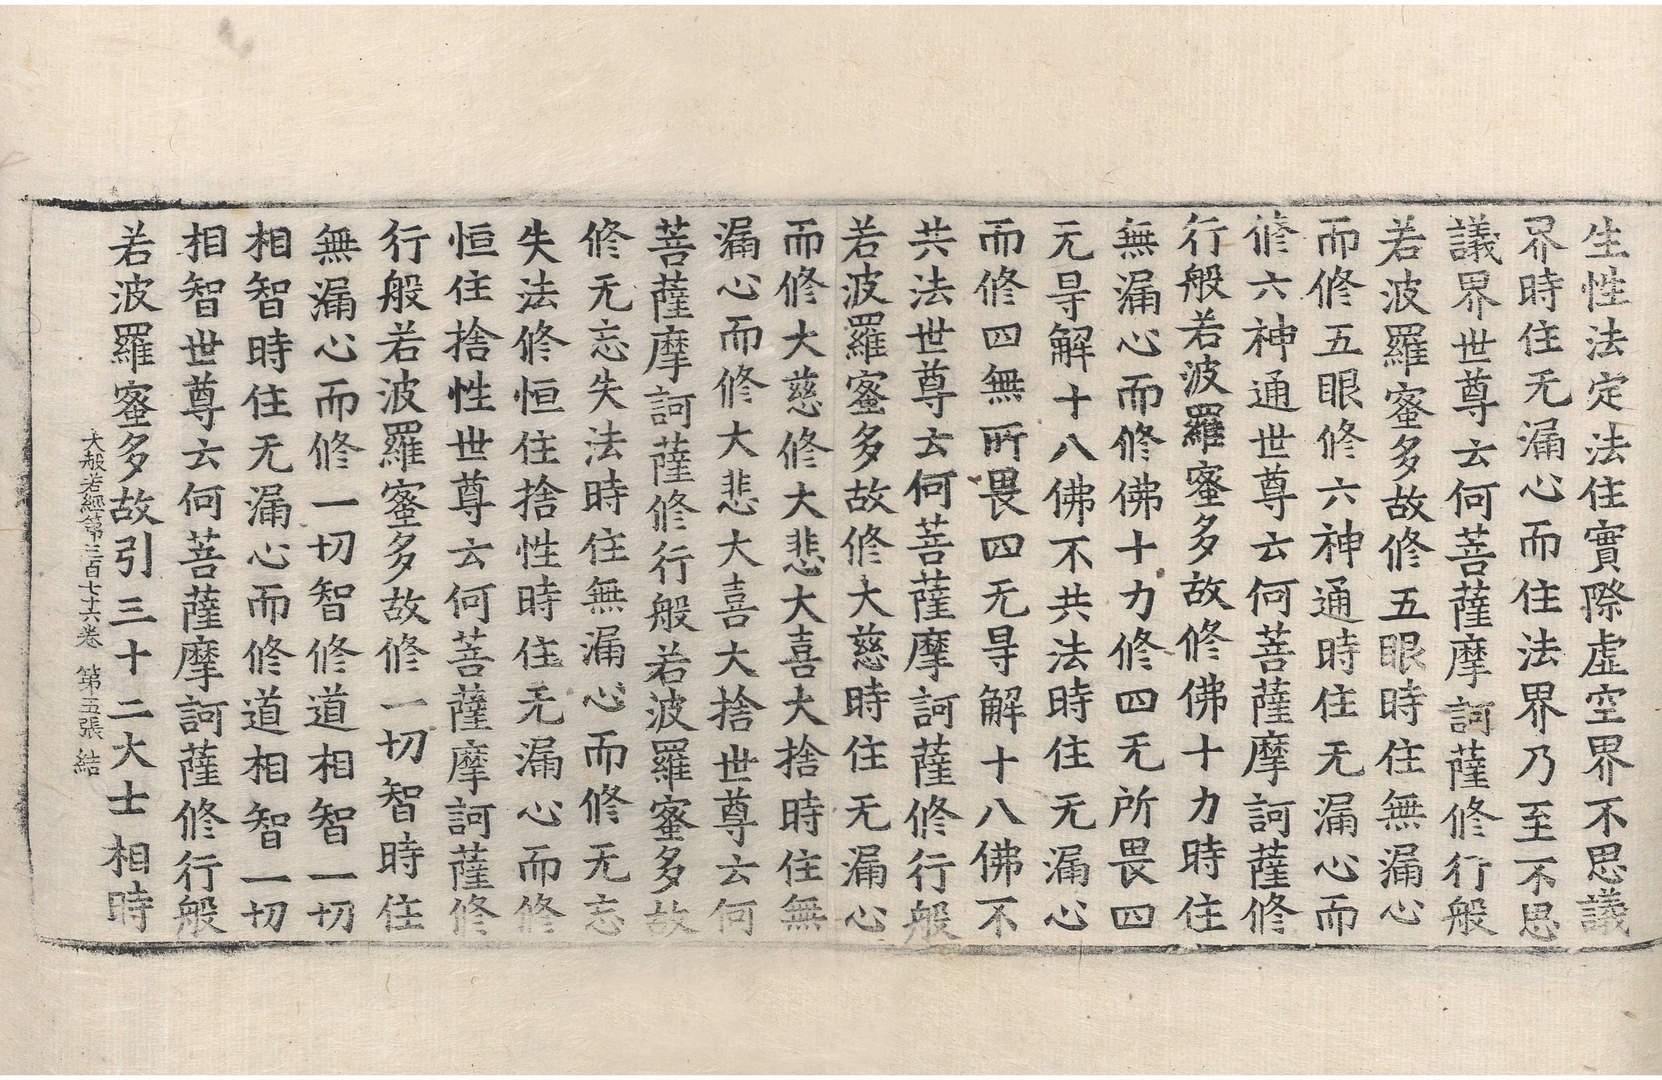 生性法定法住實際虛空界不思議
界時住无漏心而住法界乃至不思
議界世尊云何菩薩摩訶薩修行般
若波羅蜜多故修五眼時住無漏心
而修五眼修六神通時住无漏心而
修六神通世尊云何菩薩摩訶薩修
行般若波羅蜜多故修佛十力時住
無漏心而修佛十力修四无所畏四
无㝵解十八佛不共法時住无漏心
而修四無所畏四无㝵解十八佛不
共法世尊云何菩薩摩訶薩修行般
若波羅蜜多故修大慈時住无漏心
而修大慈修大悲大喜大捨時住無
漏心而修大悲大喜大捨世尊云何
菩薩摩訶薩修行般若波羅蜜多故
修无忘失法時住無漏心而修无忘
失法修恒住捨性時住无漏心而修
恒住捨性世尊云何菩薩摩訶薩修
行般若波羅蜜多故修一切智時住
無漏心而修一切智修道相智一切
相智時住无漏心而修道相智一切
相智世尊云何菩薩摩訶薩修行般
若波羅蜜多故引三十二大士相時
大般若經第三百七十六卷 第五張 結